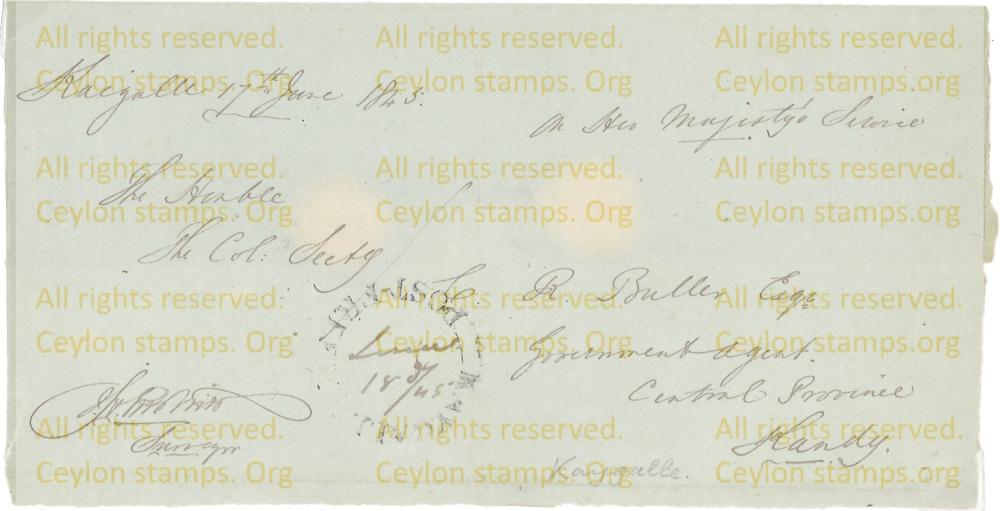 All rights reserved. All rights reserved. All rights reserved.
Ceylon stamps. Org Ceylon stamps. Org Ceylon stamps. Org
Kaigalle 17th June 1845.
On Her Majesty's Service
All rights reserved. All rights reserved. All rights reserved.
Ceylon stamps. Org Ceylon stamps. Org Ceylon stamps. org
The Honble
The Col: Secty
C. R. Buller Esqr
All rights reserved. All rights reserved. All rights reserved.
Ceylon stamps. Org Ceylon stamps. Org Ceylon stamps. org
POST
Government Agent.
18
/45
Central Province
Surveyor
All rights reserved. All rights reserved. All rights reserved.
Ceylon stamps. Org Ceylon stamps. Org Ceylon stamps. org
Kandy.
Kaigalle.